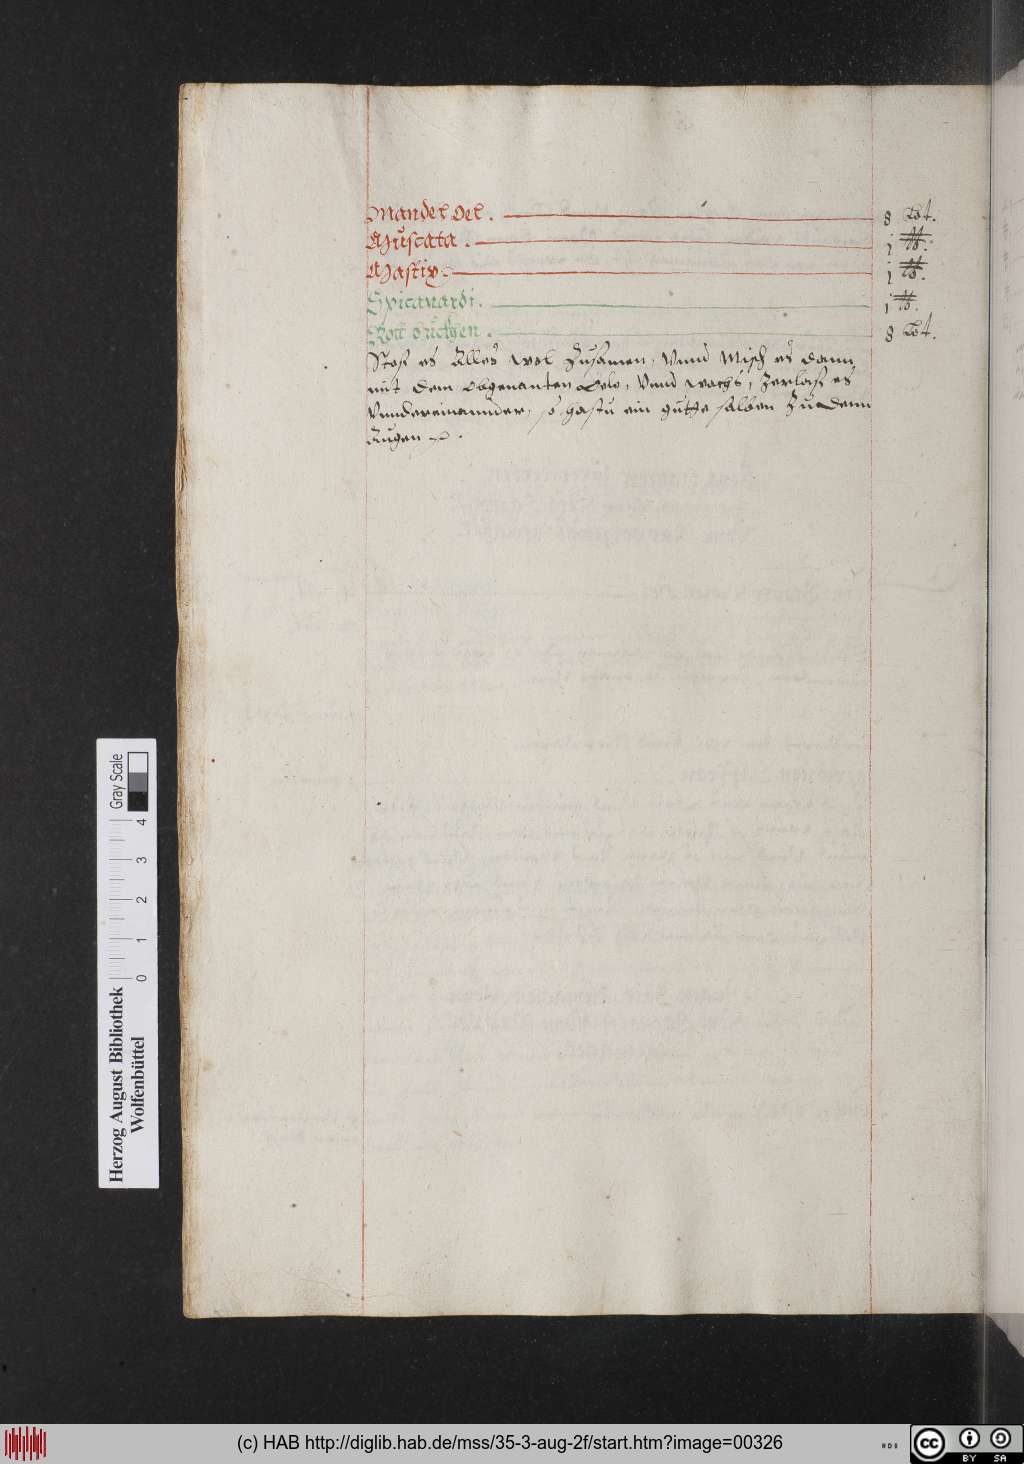 Mandel Oel. 8 Lot.
Muscata. 1 ℔.
Mastix. 1 ℔.
Spicanardi. 1 ℔.
Rott 8 Lot.
Stoß es Alles wol Zusamen, Vnnd Misch es dann
mit dem obgenanten Oele, Vnnd wachs, Zerlaß es
Vndereinannder, so hastu ein gutte salben Zu denn
Augen
Gray Scale
0 1 2 3 4
Herzog August Bibliothek
Wolfenbüttel
(c) HAB http://diglib.hab.de/mss/35-3-aug-2f/start.htm?image=00326
cc BY SA